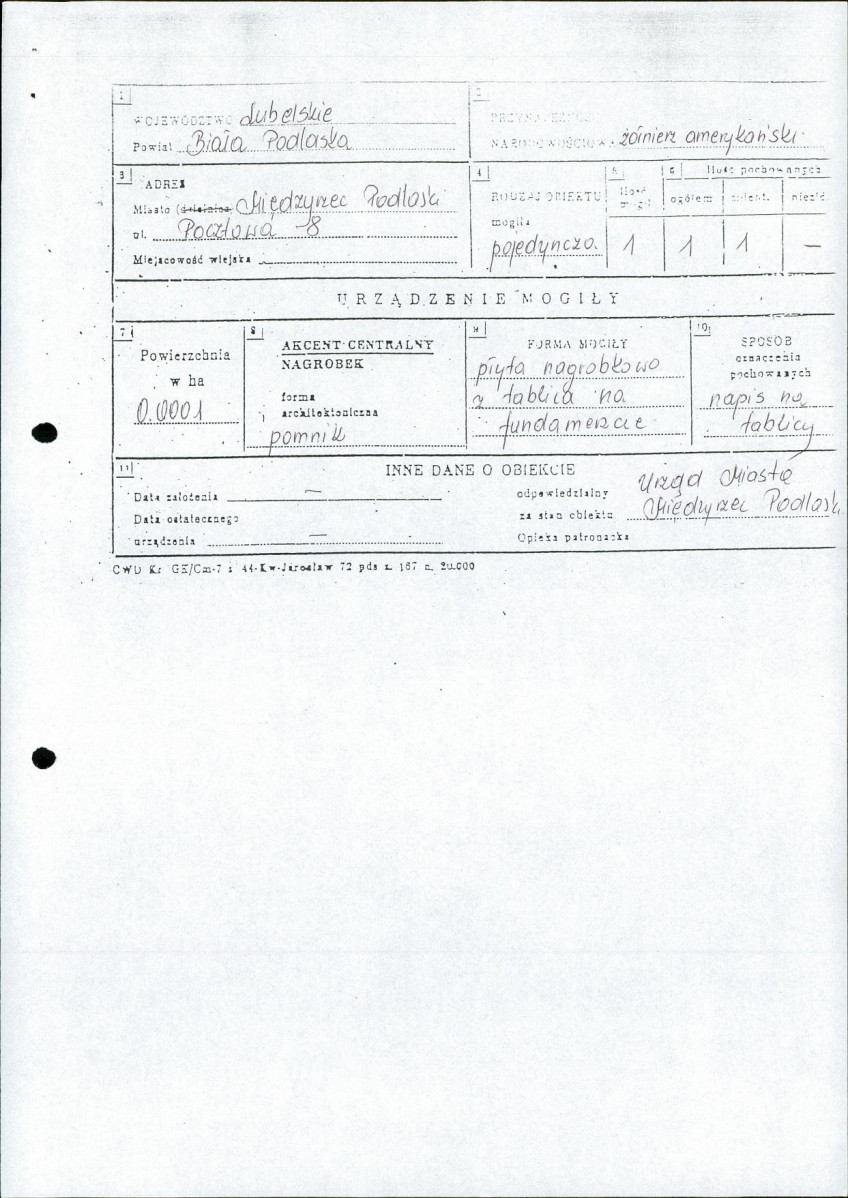 1
WOJEWÓDZTWO Lubelskie
Powiat Biała Podlaska
2
PRZYNALEŻNOŚĆ
NARODOWOŚCIOWA żołnierz amerykański
3
ADRES
Miasto (dzielnica) Międzyrzec Podlaski
ul. Pocztowa 8
Miejscowość wiejska
4
RODZAJ OBIEKTU
mogiła
pojedyncza
5
Ilość mogił
1
6
Ilość pochowanych
ogółem zident. niezid.
1 1 —
URZĄDZENIE MOGIŁY
7
Powierzchnia
w ha
0.0001
8
AKCENT CENTRALNY
NAGROBEK
forma
architektoniczna
pomnik
9
FORMA MOGIŁY
płyta nagrobkowa
z tablicą na
fundamencie
10
SPOSÓB
oznaczenia
pochowanych
napis na
tablicy
11
INNE DANE O OBIEKCIE
Data założenia —
Data ostatecznego
urządzenia —
odpowiedzialny Urząd Miasta
za stan obiektu Międzyrzec Podlaski
Opieka patronacka
CWD Kr GK/Cm-7 i 44-Kw-Jarosław 72 pds z. 167 n. 20.000